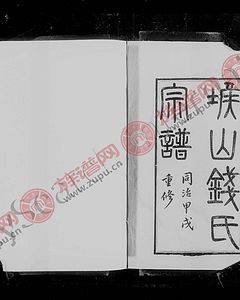 堠山錢氏
宗譜
同治甲戌
重修
族譜网
www.zupu.cn
族譜网
www.zupu.cn
族譜网
www.zupu.cn